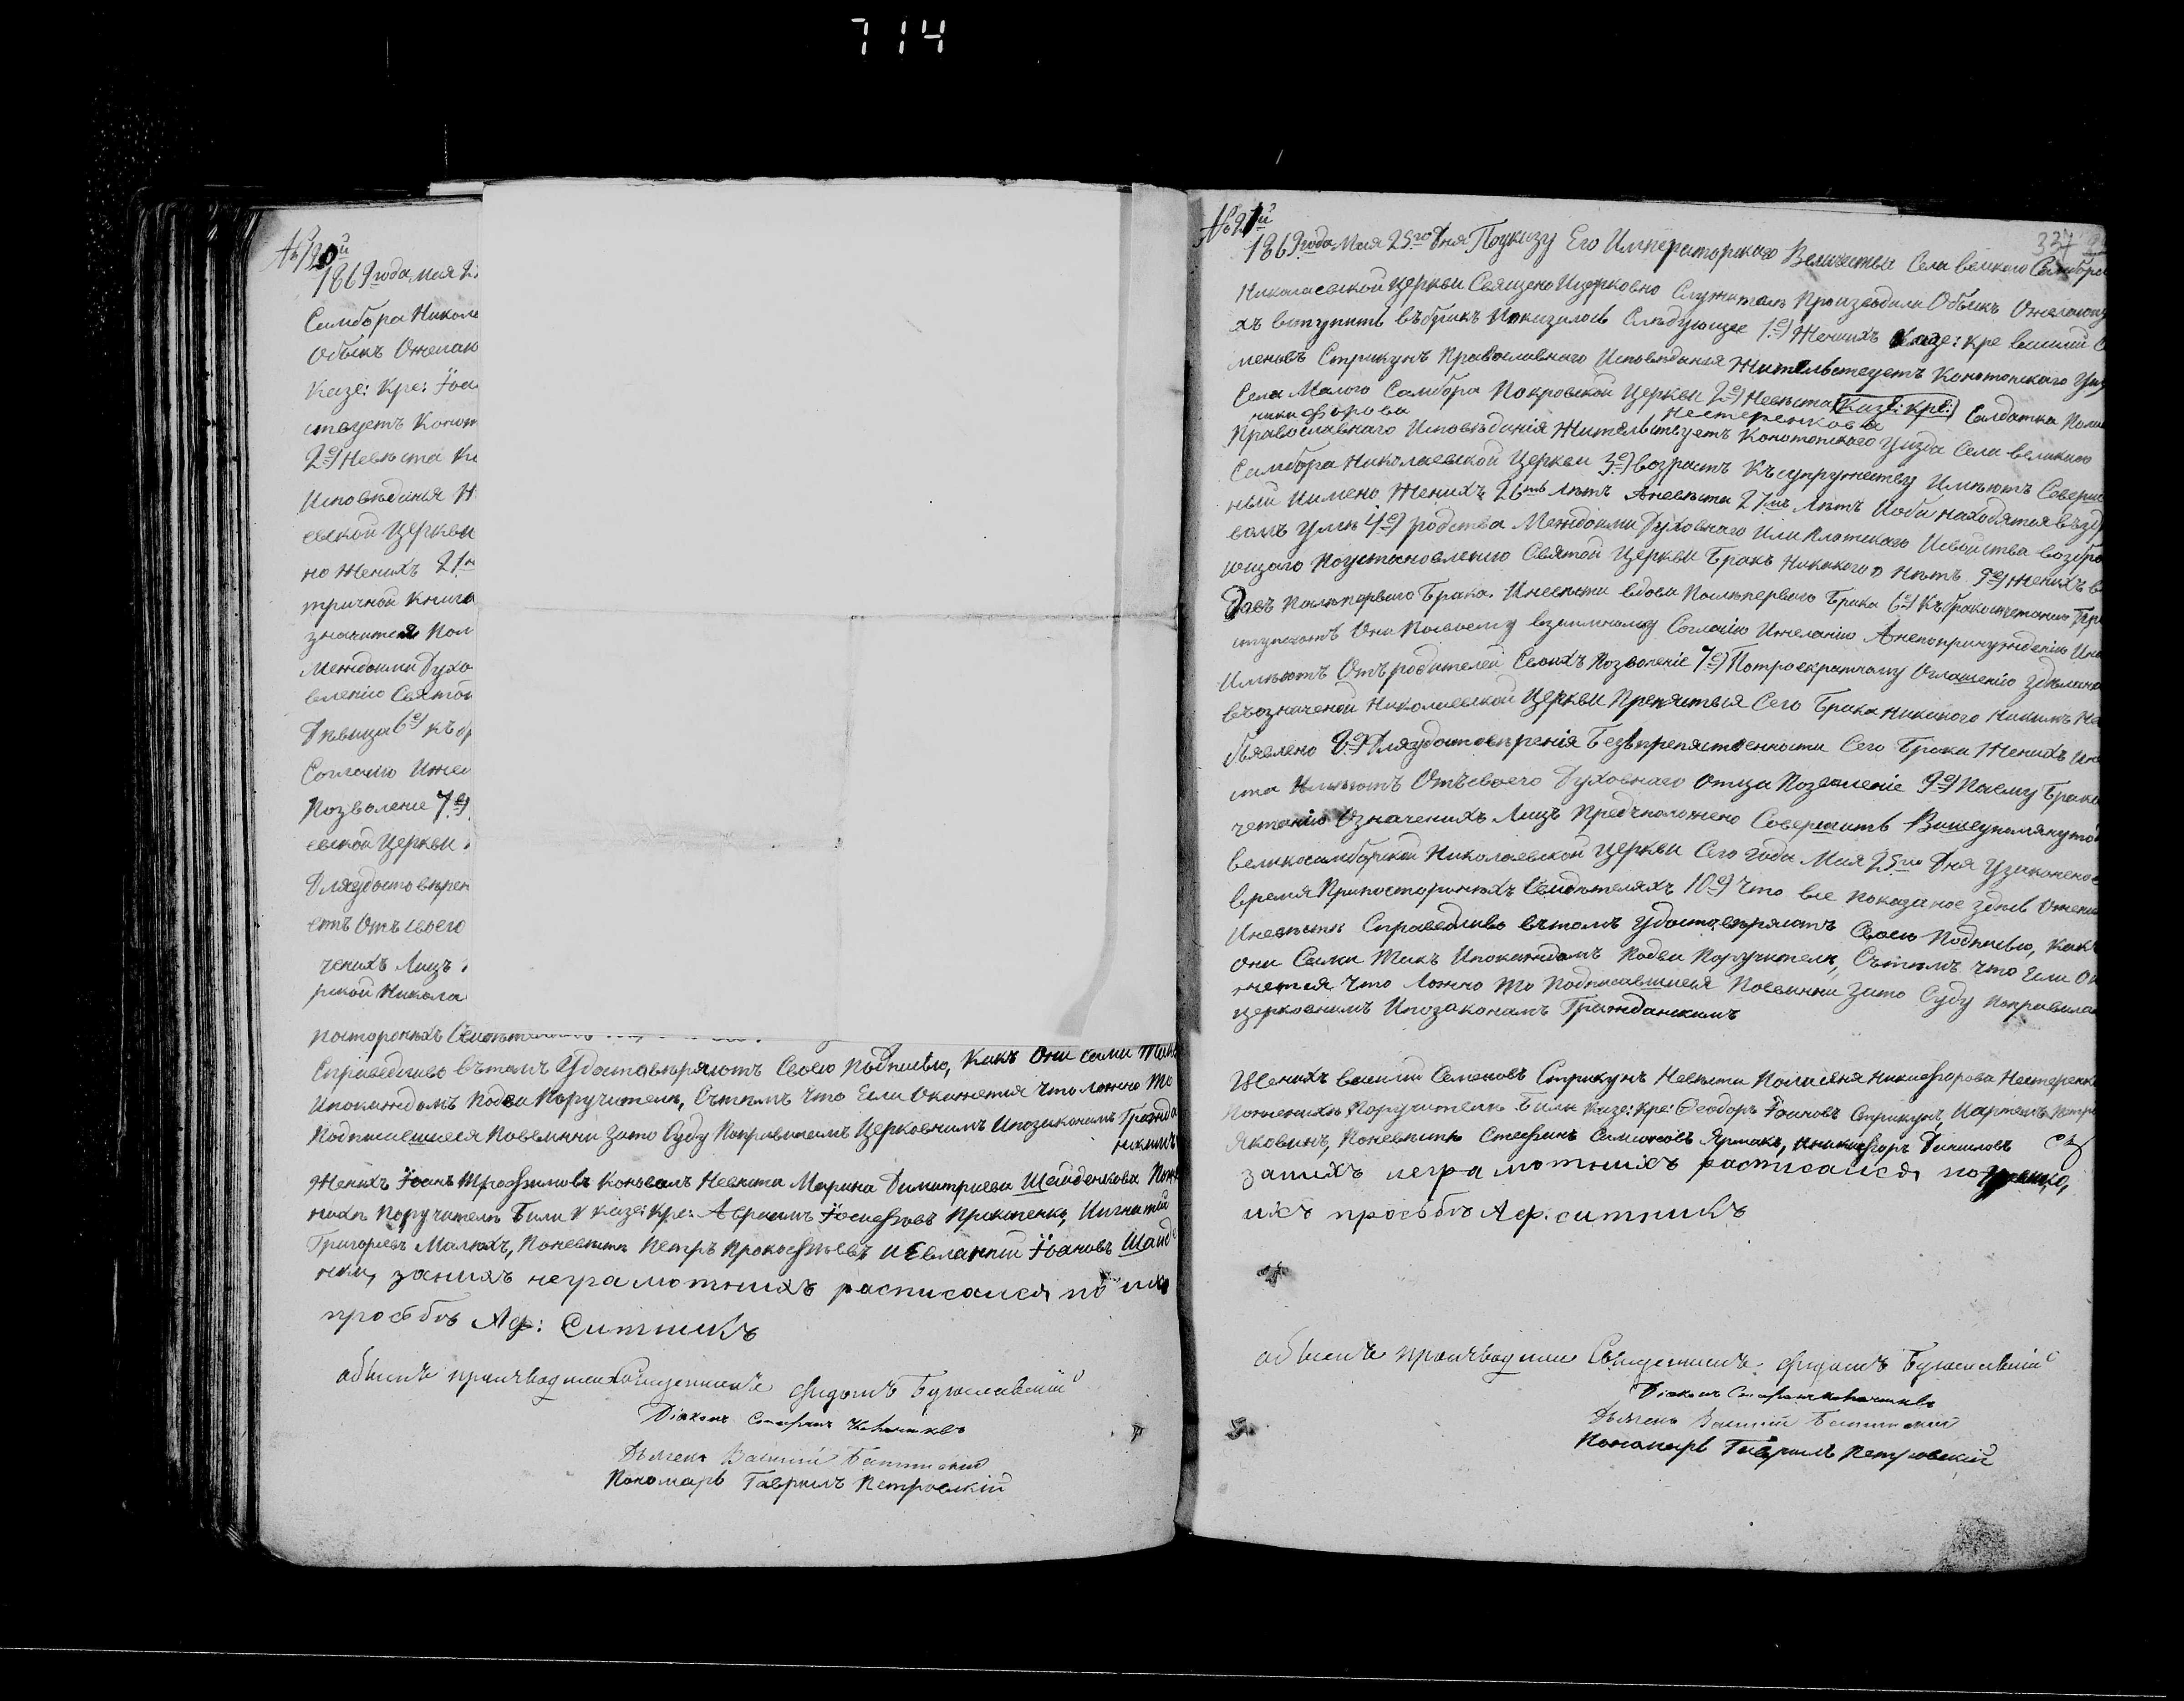 714
№ 20й
1869 года, мая 2
Самбора Никола
Обыскъ Ожелаю
Казе: Кре: Іоа
ствуетъ Коноп
2е) Невѣста Ка
Исповѣданія
евской Церкви
но Женихъ 21
тричной Книга
значится Пол
Междоими Духо
влению Святой
Дѣвица 6е) къ бр
Согласію Ижел
Позволеніе 7е)
евской Церкви
Дляудостовѣрен
етъ Отъ своего
ченихъ Лицъ
рской Никола
посторонихъ
Справедливо вътомъ Удостовѣряютъ Своею Подписью, Какъ Они сами Такъ
Ипокаждомъ Подва Поручителя, Сътѣмъ Что Если Окажется Что ложно То
Подписавшиеся Повинни Зато Суду Поправиламъ Церковнимъ Ипозаконамъ Гражда
нскимъ
Женихъ Іоанъ Трофимовъ Коновалъ Невѣста Марина Димитриева Шейденкова Поже
нихѣ Поручители Были Казе: Кре: Авраамъ Іосифовъ Прокопенко, Иигнатий
Григориевъ Малюхъ, Поневѣстѣ Петръ Прокофиевъ И Евлампий Іоановъ Шайде
нки, занихъ неграмотнихъ расписался по ихъ
просьбѣ Аф: Ситникъ
обыскъ производили Священникъ
Діаконъ Стефанъ
Дьячекъ Василий
Пономарь Гавриилъ Петровский
№ 21й
337
1869 года Мая 25го Дня Поуказу Его Императорскаго Величества Села великого Самбора
Николаевской Церкви Священо Ицерковно Служители Производили Обыскъ Ожелающи
хъ вступить въбракъ Иоказалось Слѣдующее 1е) Женихъ Казе: Кре василий С
меновъ Стрикунъ Православнаго Исповѣданія Жительствуетъ Конотопскаго Уѣз
Села Малого Самбора Покровской Церкви 2е) Невѣста (Казе: Кре:) Салдатка Пола
никифорова Нестеренкова
Православнаго Исповѣданія Жительствуетъ Конотопскаго Уѣзда Села великаго
Самбора Николаевской Церкви 3е) возрастъ Късупружеству Имѣютъ Соверше
ный Иимено Женихъ 26ть Лѣтъ Аневѣста 27мь Лѣтъ Иоба находятся въздр
вомъ Умѣ 4е) родства Междоими Духовнаго Или Плотскаго Исвойства возбра
ющаго Поустановлению Святой Церкви Бракъ Никакого нѣтъ 5е) Женихъ в
довъ Послѣпервого Брака. Иневѣста вдова Послѣпервого Брака 6е) Къбракосочетанию Пр
ступаютъ Они Посвоему взаимному Согласію Ижеланию Анепопринуждению Ина
Имѣютъ Отъродителей Своихъ Позволеніе 7е) Потроекратному Оглашению Здѣлано
въозначеной Николаевской Церкви Препятствія Сего Брака никакого Никимъ Не
бъявлено 8е) Дляудостовѣренія Безъпрепятственности Сего Брака Женихъ Ине
ста Имѣютъ Отъсвоего Духовнаго отца Позволеніе 9е) Посему Брако
четанию Означенихъ Лицъ Предположено Совершить Вишеупомянутой
великосамборской Николаевской Церкви Сего года Мая 25го Дня Узаконеное
время Припосторонихъ Свидѣтеляхъ 10е) Что все показаное здѣсь Ожени
Иневѣстѣ Справедливо вътомъ Удостовѣряютъ Своею Подписью, Какъ
они Сами Такъ Ипокаждомъ Подва Поручителя, Сътѣмъ что Если Ока
жется Что Ложно То Подписавшиеся Повинни Зато Суду Поправила
Церковнимъ Ипозаконамъ Гражданскимъ
Женихъ василий Семеновъ Стрикунъ Невѣста Полікія Никифорова Нестеренко
Поженихѣ Поручители Были Казе: Кре: Феодоръ Іоановъ Стрикунъ, Иартемъ Петро
Яковинъ, Поневѣстѣ Стефанъ Симоновъ Ярмакъ, Иникифоръ Даниловъ
занихъ неграмотнихъ расписался по
ихъ просьбѣ Аф: ситникъ
обыскъ производили Священникъ
Діаконъ Стефанъ
Дьячекъ Василий
Пономарь Гавриилъ Петровский